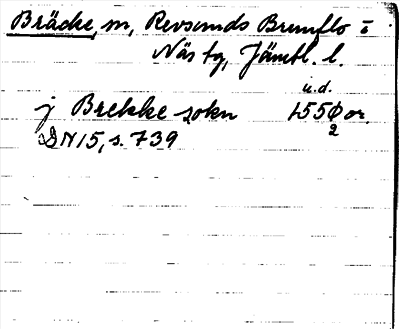 Bräcke, m, Revsunds Brunflo o
Näs tg, Jämtl. l.
u.d.
j Brekke sokn 1550 or.
2
DN 15, s. 739